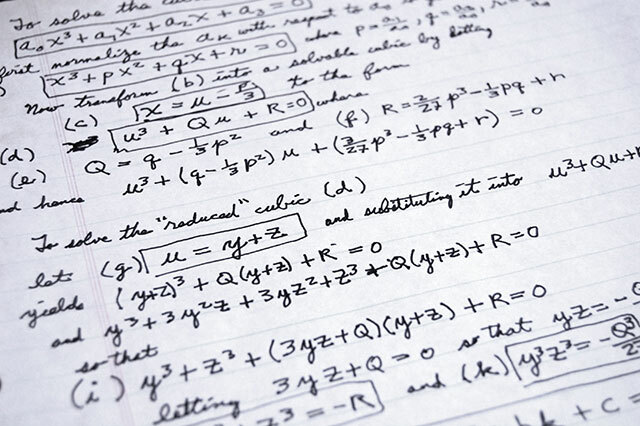 To solve the cubic
a₀x³ + a₁x² + a₂x + a₃ = 0
first normalize the aₖ with respect to a₀
x³ + px² + qx + r = 0 where p = a₁/a₀, q = a₂/a₀,
Now transform (b) into a solvable cubic by letting
(c) x = u - p/3 to the form
(d) u³ + Qu + R = 0 where
(e) Q = q - 1/3 p² and (f) R = 2/27 p³ - 1/3 pq + r
and hence u³ + (q - 1/3 p²) u + (2/27 p³ - 1/3 pq + r) = 0
To solve the "reduced" cubic (d)
let (g) u = y + z and substituting it into u³ + Qu +
yields (y+z)³ + Q(y+z) + R = 0
and y³ + 3y²z + 3yz² + z³ + Q(y+z) + R = 0
so that
(i) y³ + z³ + (3yz + Q)(y+z) + R = 0
letting 3yz + Q = 0 so that yz = -
z³ = -R and (k) y³z³ = -Q³/
+ c =